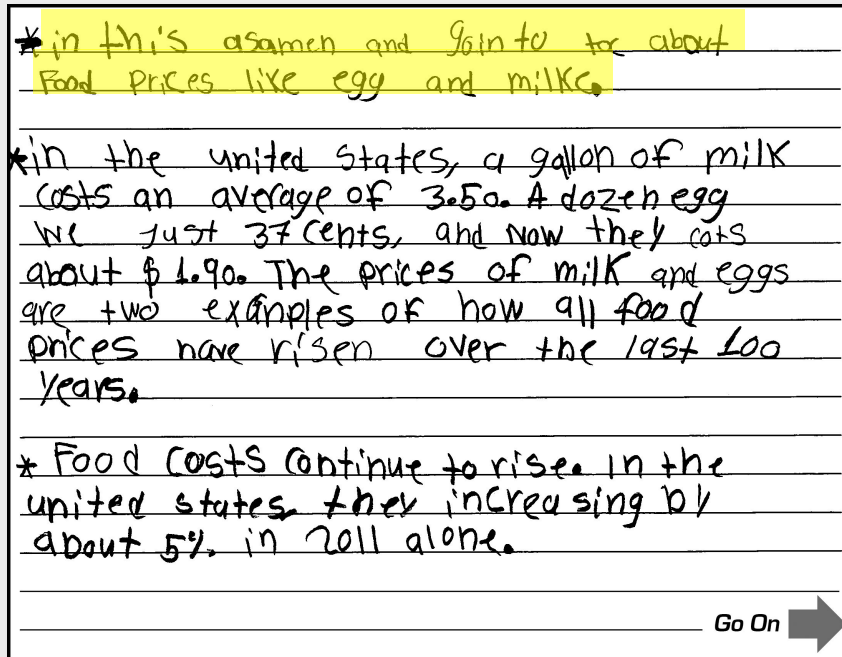 * in this asamen and goin to toc about
Food prices like egg and milke.
* in the united states, a gallon of milk
costs an average of 3.50. A dozen egg
we just 37 cents, and now they cots
about $ 1.90. The prices of milk and eggs
are two exanples of how all food
prices have risen over the last 100
years.
* Food costs continue to rise. in the
united states they increasing by
about 5%. in 2011 alone.
Go On